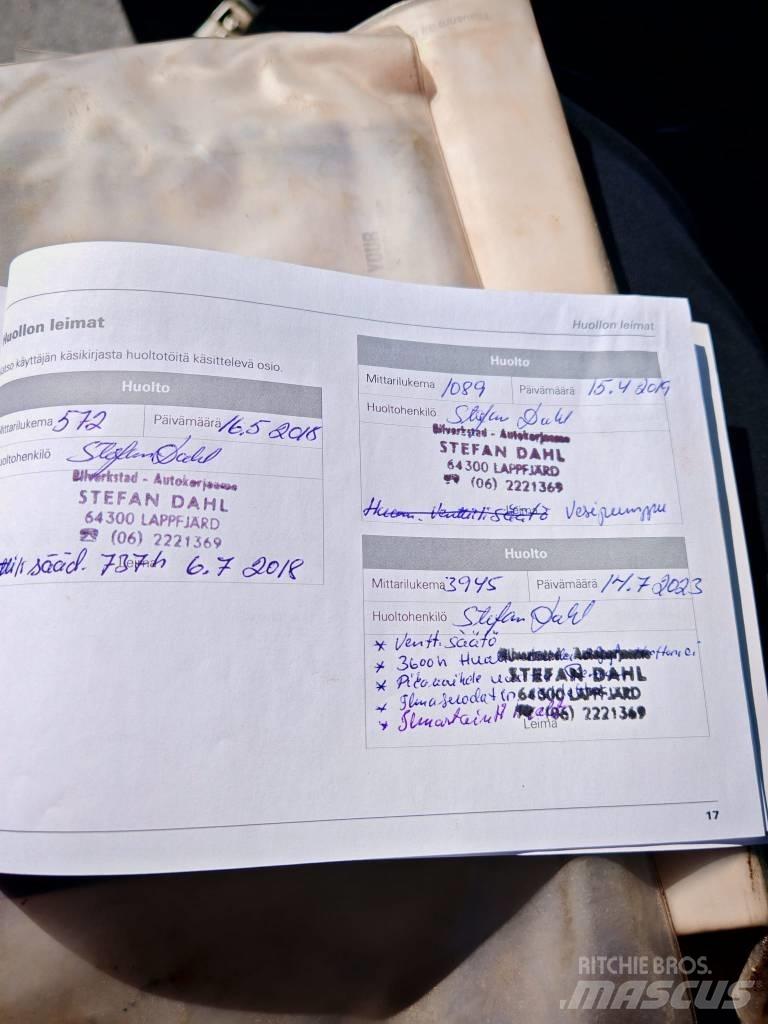 YOUR
Huollon leimat
Huollon leimat
Katso käyttäjän käsikirjasta huoltotöitä käsittelevä osio.
Huolto
Mittarilukema 572 Päivämäärä 16.5 2018
Huoltohenkilö Stefan Dahl
Bilverkstad - Autokorjaamo
STEFAN DAHL
64300 LAPPFJÄRD
☎ (06) 2221369
Leima
sääd. 737h 6.7 2018
Huolto
Mittarilukema 1089 Päivämäärä 15.4 2019
Huoltohenkilö Stefan Dahl
Bilverkstad - Autokorjaamo
STEFAN DAHL
64300 LAPPFJÄRD
☎ (06) 2221369
Leima
Huom. Venttiili säätö Vesipumppu
Huolto
Mittarilukema 3945 Päivämäärä 14.7 2023
Huoltohenkilö Stefan Dahl
* Ventt. säätö
* 3600h
Bilverkstad - Autokorjaamo
STEFAN DAHL
64300 LAPPFJÄRD
☎ (06) 2221369
Leima
17
RITCHIE BROS.
MASCUS